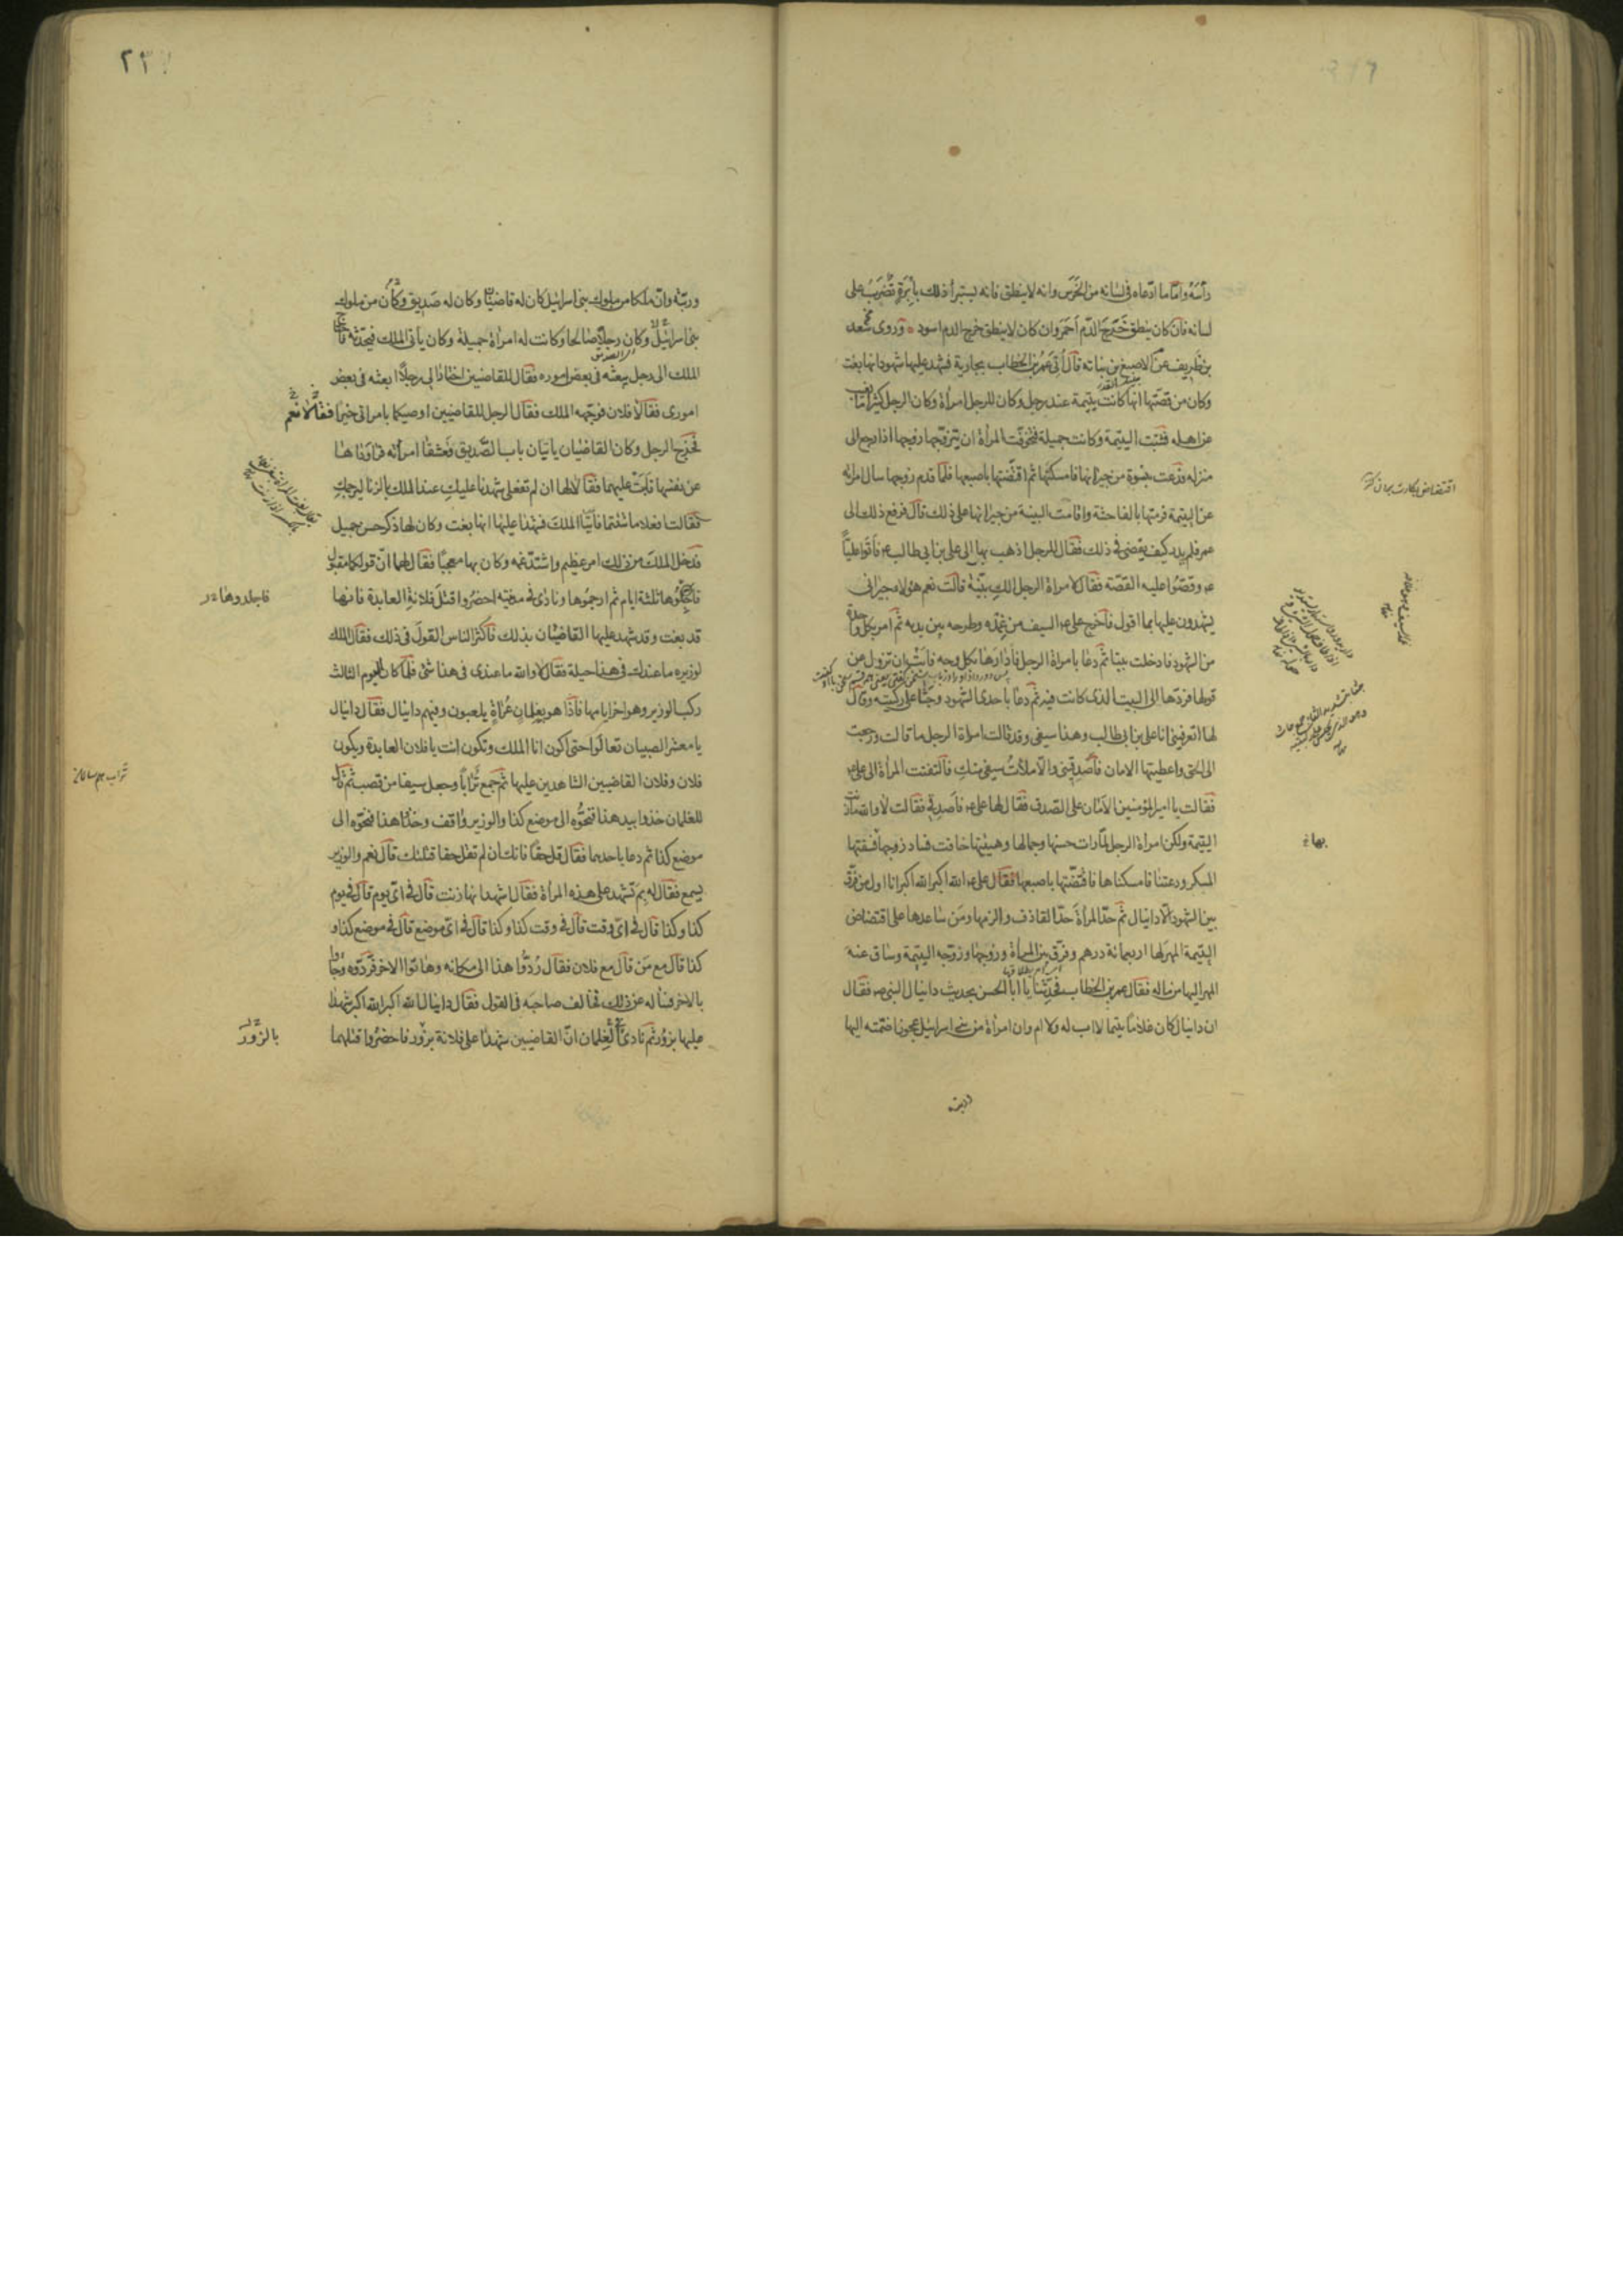 رأسه واما ما ادّعاه فى لسانه من الخرس وانه لا ينطق فانه يستبرأ ذلك بابرة تضرب على
لسانه فان كان ينطق خرج الدم احمر وان كان لا ينطق خرج الدم اسود وروى سعد
بن طريف عن الاصبغ بن نباته قال أتى عمر بن الخطاب بجارية فشهد عليها شهود انها بغت
وكان من قصّتها انها كانت يتيمة عند رجل وكان للرجل امرأة وكان الرجل كثيرا ما يغيب
عن اهله فشبّت اليتيمة وكانت جميلة فتخوفت المرأة ان يتزوجها زوجها اذا رجع الى
منزله فدعت بنسوة من جيرانها فامسكنها ثم اقتضّتها باصبعها فلما قدم زوجها سال امراته
عن اليتيمة فرمتها بالفاحشة واقامت البينة من جيرانها على ذلك قال فرفع ذلك الى
عمر فلم يدر كيف يقضى فى ذلك فقال للرجل اذهب بها الى على بن ابى طالب ع فأتوا عليّا
ع وقصّوا عليه القصّة فقال لامراة الرجل الك بيّنة قالت نعم هؤلاء جيرانى
يشهدون عليها بما اقول فاخرج على ع السيف من غمده وطرحه بين يديه ثم امر بكل واحدة
من الشهود فادخلت بيتا ثم دعا بامراة الرجل فادارها بكل وجه فابت ان تزول عن
قولها فردّها الى البيت الذى كانت فيه ثم دعا باحدى الشهود وجثا على ركبتيه وقال
لها اتعرفينى انا على بن ابى طالب وهذا سيفى وقد قالت امراة الرجل ما قالت ورجعت
الى الحق واعطيتها الامان فاصدقينى والا ملأت سيفى منك فالتفتت المرأة الى على ع
فقالت يا امير المؤمنين الامان على الصدق فقال لها على ع فاصدقى فقالت لا والله ما زنت
اليتيمة ولكن امراة الرجل لما رات حسنها وجمالها وهيئتها خافت فساد زوجها فسقتها
المسكر ودعتنا فامسكناها فاقتضّتها باصبعها فقال على ع الله اكبر الله اكبر انا اول من فرّق
بين الشهود الا دانيال ثم حدّ المرأة حدّ القاذف والزمها ومن ساعدها على اقتضاض
اليتيمة المهر لها اربعمائة درهم وفرّق بين المرأة وزوجها وزوّجه اليتيمة وساق عنه
المهر اليها من ماله فقال عمر بن الخطاب فحدّثنا يا ابا الحسن بحديث دانيال النبى ع فقال
ان دانيال كان غلاما يتيما لا اب له ولا ام وان امرأة من بنى اسرائيل عجوزا ضمّته اليها
وربته
بها خ
وربّته وانّ ملكا من ملوك بنى اسرائيل كان له قاضيان وكان له صديق وكان من ملوك
بنى اسرائيل وكان رجلا صالحا وكانت له امراة جميلة وكان يأتى الملك فيحدّثه فاحتاج
الملك الى رجل يبعثه فى بعض اموره فقال للقاضيين اختارا لى رجلا ابعثه فى بعض
امورى فقالا فلان فوجّهه الملك فقال الرجل للقاضيين اوصيكما بامراتى خيرا فقالا نعم
فخرج الرجل وكان القاضيان ياتيان باب الصّديق فعشقا امراته فراوداها
عن نفسها فابت عليهما فقالا لها ان لم تفعلى شهدنا عليك عند الملك بالزنا ليرجمك
فقالت افعلا ما شئتما فأتيا الملك فشهدا عليها انها بغت وكان لها ذكر حسن جميل
فدخل الملك من ذلك امر عظيم واشتدّ غمه وكان بها معجبا فقال لهما انّ قولكما مقبول
فاجّلوها ثلثة ايام ثم ارجموها ونادى فى مدينته احضروا قتل فلانة العابدة فانها
قد بغت وقد شهد عليها القاضيان بذلك فاكثر الناس القول فى ذلك فقال الملك
لوزيره ما عندك فى هذا حيلة فقال لا والله ما عندى فى هذا شئ فلما كان اليوم الثالث
ركب الوزير وهو اخر ايامها فاذا هو بغلمان عراة يلعبون وفيهم دانيال فقال دانيال
يا معشر الصبيان تعالوا حتى اكون انا الملك وتكون انت يا فلان العابدة ويكون
فلان وفلان القاضيين الشاهدين عليها ثم جمع ترابا وجعل سيفا من قصب ثم قال
للغلمان خذوا بيد هذا فنحّوه الى موضع كذا والوزير واقف وخذوا هذا فنحّوه الى
موضع كذا ثم دعا باحدهما فقال قل حقا فانك ان لم تقل حقا قتلتك قال نعم والوزير
يسمع فقال له بم تشهد على هذه المرأة فقال اشهد انها زنت قال فى اى يوم قال فى يوم
كذا وكذا قال فى اى وقت قال فى وقت كذا وكذا قال فى اى موضع قال فى موضع كذا و
كذا قال مع من قال مع فلان فقال ردّوا هذا الى مكانه وهاتوا الاخر فردّوه وجاؤا
بالاخر فسأله عن ذلك فخالف صاحبه فى القول فقال دانيال الله اكبر الله اكبر شهدا
عليها بزور ثم نادى فى الغلمان انّ القاضيين شهدا على فلانة بزور فاحضروا قتلهما
بالزّور